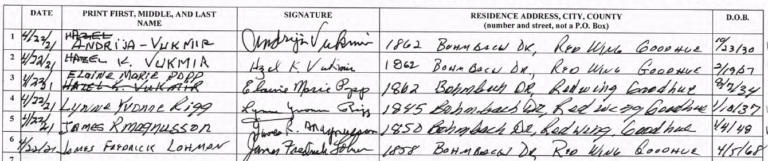 DATE PRINT FIRST, MIDDLE, AND LAST NAME SIGNATURE RESIDENCE ADDRESS, CITY, COUNTY (number and street, not a P.O. Box) D.O.B.
1 4/22/21 HAZEL ANDRIJA-VUKMIR Andrija Vukmir 1862 BOHMBACH DR, RED WING GOODHUE 10/23/30
2 4/22/21 HAZEL K. VUKMIR Hazel K Vukmir 1862 BOHMBACH DR, RED WING GOODHUE
3 4/22/21 ELAINE MARIE POPP HAZEL K. VUKMIR Elaine Marie Popp 1862 Bohmbach Dr, Redwing Goodhue
4 4/22/21 LYNINE YVONNE Rigg 1845 Bohmbach Dr, Red wing Goodhue 1/10/37
5 4/22/21 JAMES R MAGNUSSON James R. Magnusson 1850 Bohmbach Dr Red wing Goodhue 1/4/48
6 4/22/21 JAMES FREDRICK LOHMAN James Fredrick Lohman 1858 BOHMBACH DR, RED WING GOODHUE 4/5/68
7